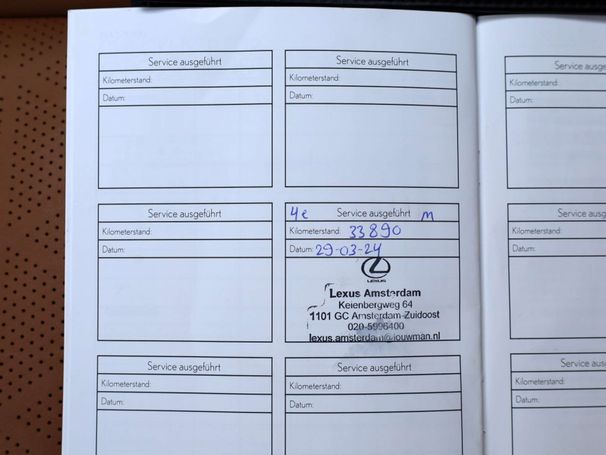 Service ausgeführt
Kilometerstand:
Datum:
Service ausgeführt
Kilometerstand:
Datum:
Service ausge
Kilometerstand:
Datum:
Service ausgeführt
Kilometerstand:
Datum:
4e Service ausgeführt M
Kilometerstand: 33890
Datum: 29-03-24
LEXUS
Lexus Amsterdam
Keienbergweg 64
1101 GC Amsterdam-Zuidoost
020-5996400
lexus.amsterdam@louwman.nl
Service ausg
Kilometerstand:
Datum:
Service ausgeführt
Kilometerstand:
Datum:
Service ausgeführt
Kilometerstand:
Datum:
Service ausg
Kilometerstand:
Datum: